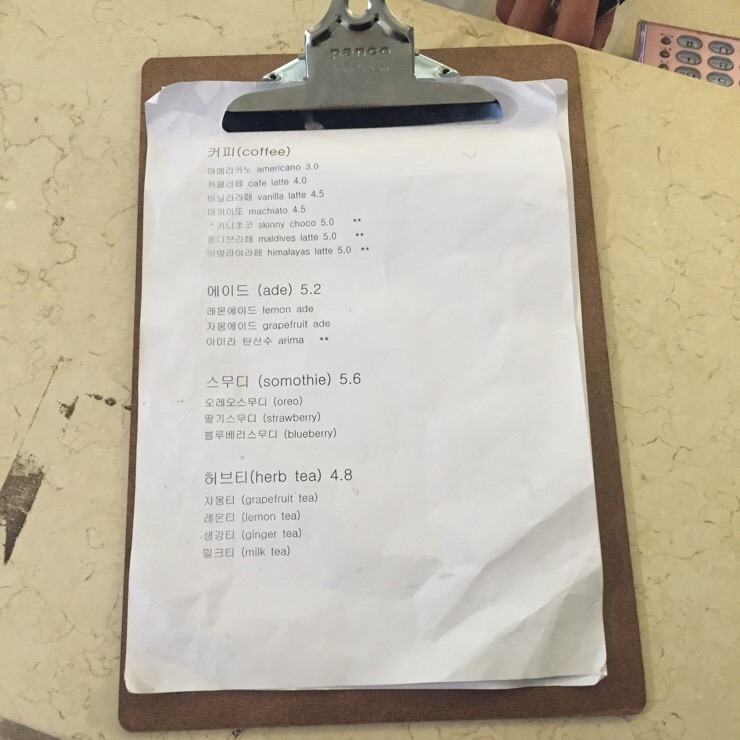 penco
커피(coffee)
아메리카노 americano 3.0
카페라떼 cafe latte 4.0
바닐라라떼 vanilla latte 4.5
마끼아또 machiato 4.5
스키니쵸코 skinny choco 5.0 **
몰디브라떼 maldives latte 5.0 **
히말라야라떼 himalayas latte 5.0 **
에이드 (ade) 5.2
레몬에이드 lemon ade
자몽에이드 grapefruit ade
아미라 탄산수 arima **
스무디 (somothie) 5.6
오레오스무디 (oreo)
딸기스무디 (strawberry)
블루베리스무디 (blueberry)
허브티(herb tea) 4.8
자몽티 (grapefruit tea)
레몬티 (lemon tea)
생강티 (ginger tea)
밀크티 (milk tea)